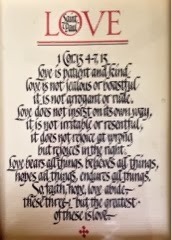 LOVE
Saint Paul
1 Cor. 13 4-7, 13
Love is patient and kind
love is not jealous or boastful
it is not arrogant or rude.
Love does not insist on its own way,
it is not irritable or resentful,
it does not rejoice at wrong
but rejoices in the right.
Love bears all things, believes all things,
hopes all things, endures all things.
So faith, hope, love abide,
these three, but the greatest
of these is love.